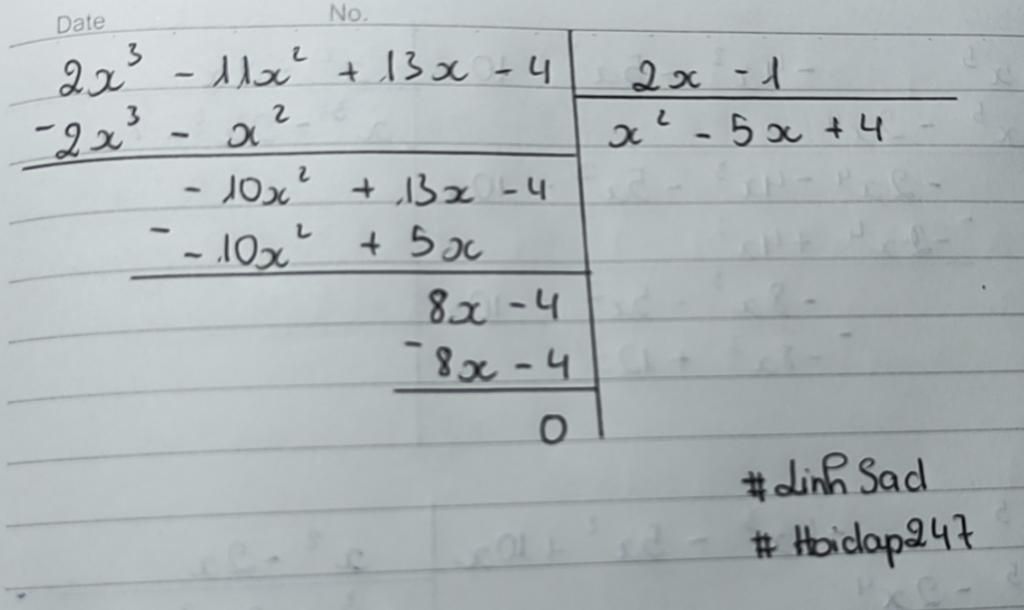 Date No.
2x³ - 11x² + 13x - 4 | 2x - 1
- 2x³ - x² | x² - 5x + 4
- 10x² + 13x - 4
- - 10x² + 5x
8x - 4
- 8x - 4
0
# Linh Sad
# Hoidap247